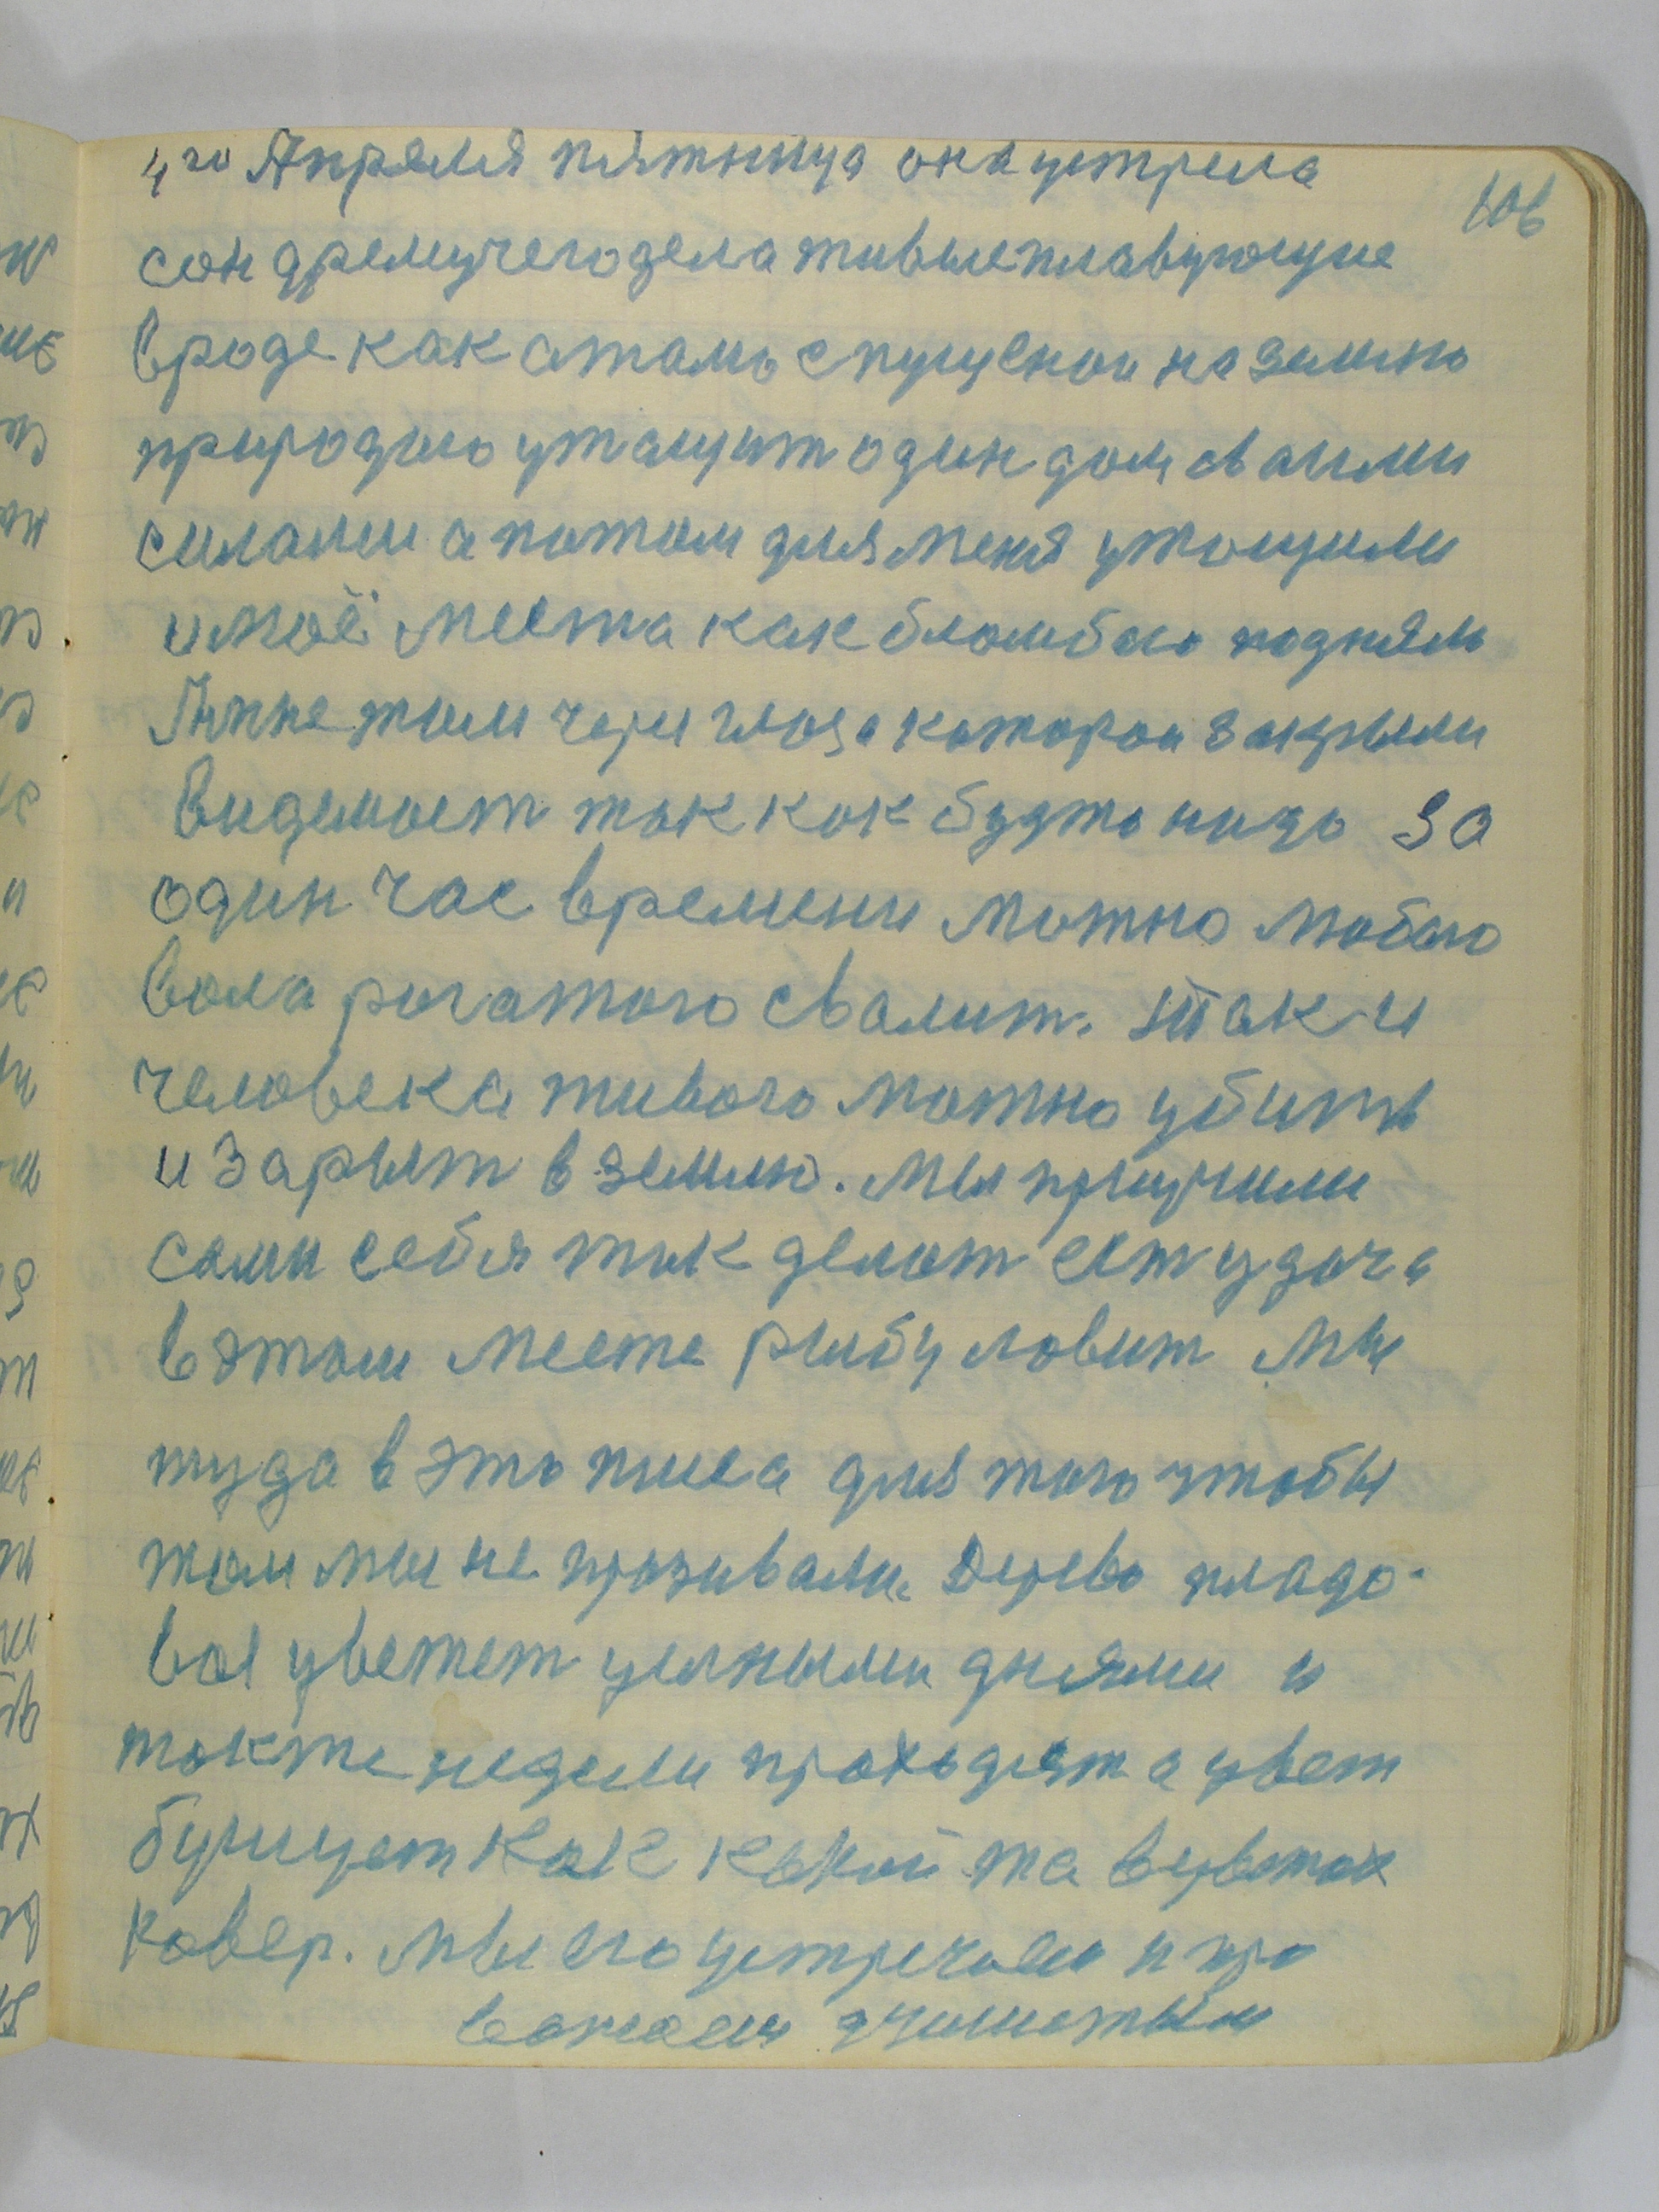 106
4го Апреля пятница она устрела
сон дремучегодела живыеплавующие
вроде как атамо спущеной на землю
природию утащит один дом сваими
силами а потом дляменя утощили
имоё места как бломбою подняли
там через глаза которой закрыли
видемост так как будто надо за
один час времени можно любою
вола рогатого свалит. так и
человека живого можно убить
и зарыт в землю. мы приучили
сами себя так делат ест удача
в этом месте рыбу ловит мы
туда в это
для того чтобы
там мы не проживали. Дерево пладо-
воя цветет целными днями и
также недели проходят а цвет
бушует как какой та вцветах
ковер. мы его устречаем и про
вожаем